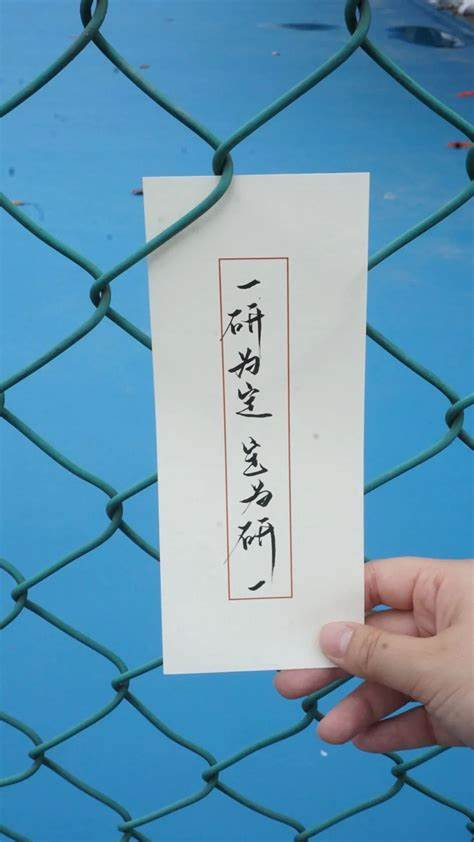 一研为定 定为研一